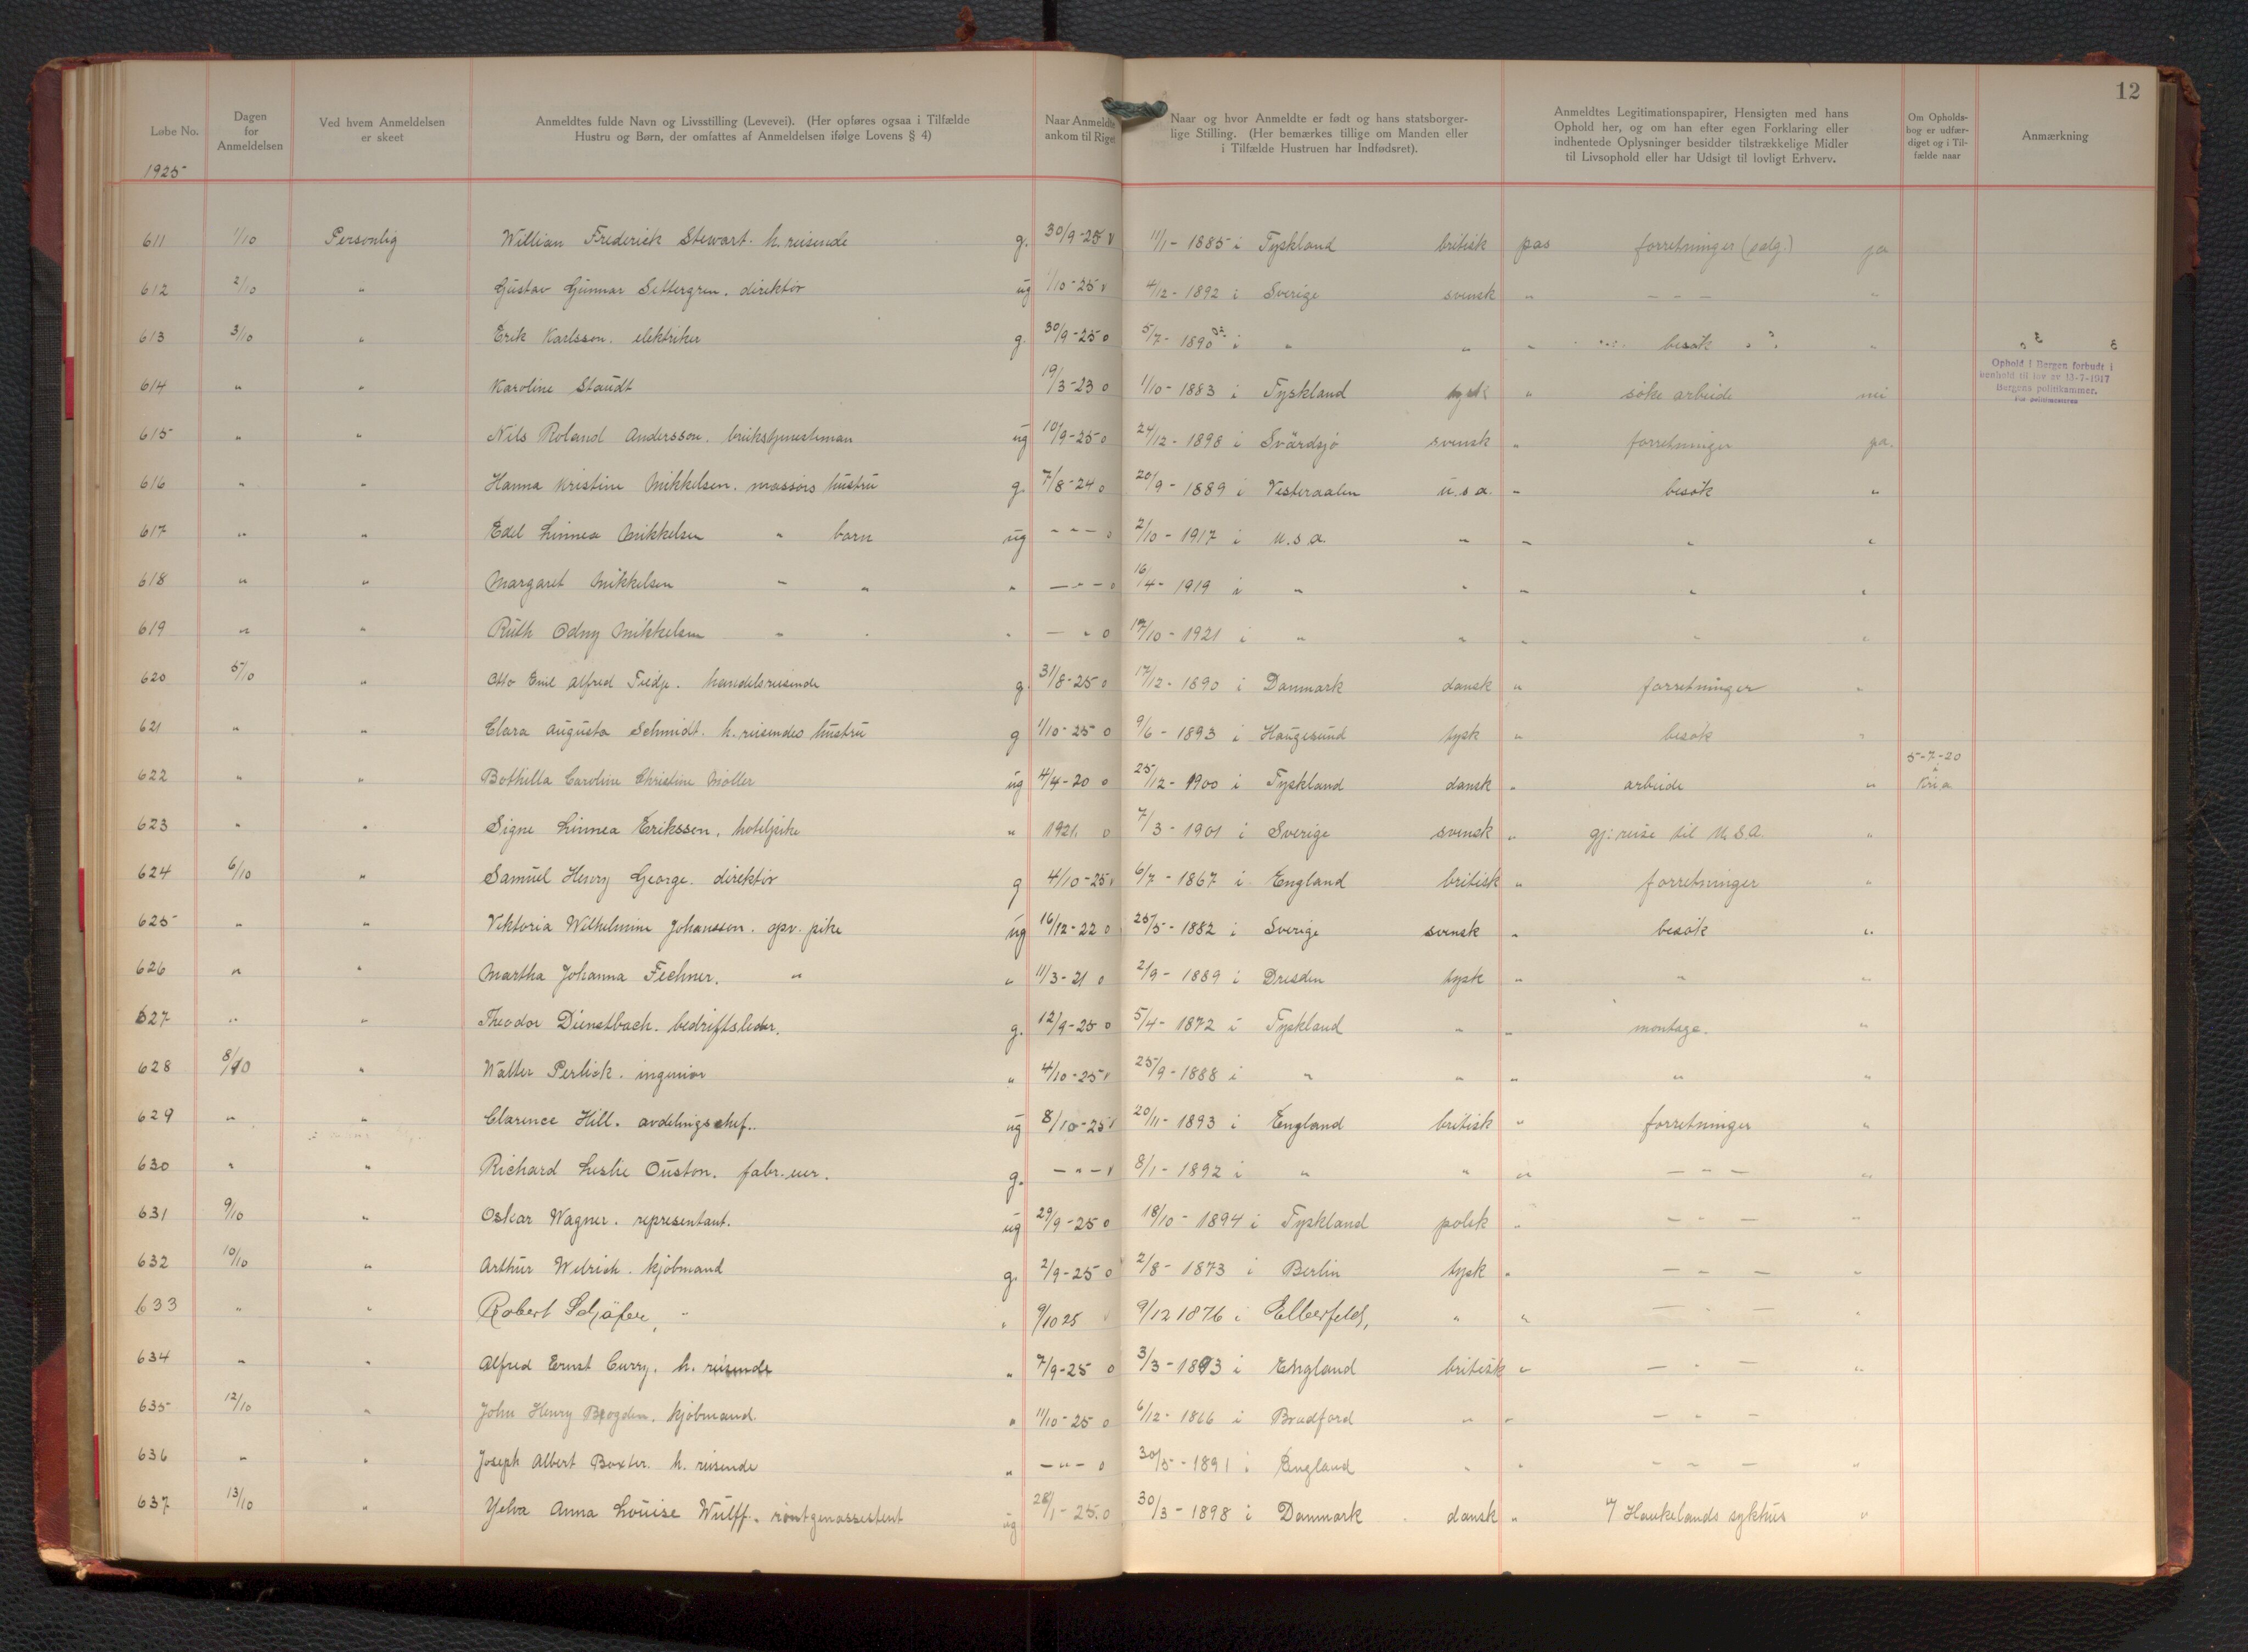 12
Løbe No.
1925
Dagen
for
Anmeldelsen
Ved hvem Anmeldelsen
er skeet
Anmeldtes fulde Navn og Livsstilling (Levevei). (Her opføres ogsaa i Tilfælde
Hustru og Børn, der omfattes af Anmeldelsen ifølge Lovens § 4)
Naar Anmeldte
ankom til Riget
Naar og hvor Anmeldte er født og hans statsborger-
lige Stilling. (Her bemærkes tillige om Manden eller
i Tilfælde Hustruen har Indfødsret).
Anmeldtes Legitimationspapirer, Hensigten med hans
Ophold her, og om han efter egen Forklaring eller
indhentede Oplysninger besidder tilstrækkelige Midler
til Livsophold eller har Udsigt til lovligt Erhverv.
Om Opholds-
bog er udfær-
diget og i Til-
fælde naar
Anmærkning
611 1/10 Personlig William Frederick Stewart. h. reisende g. 30/9-25 v 11/1-1885 i Tyskland britisk pas forretninger (salg.) ja
612 2/10 " Gustav Gunnar Settergren. direktör ug 1/10-25 v 4/12-1892 i Sverige svensk " - - - "
613 3/10 " Erik Karlsson. elektriker g. 30/9-25 o 5/7-1890 i " " " besök "
614 " " Karoline Staudt 19/3-23 o 1/10-1883 i Tyskland tysk " söke arbeide nei
Ophold i Bergen forbudt i
henhold til lov av 13-7-1917
Bergens politikammer.
For politimesteren
615 " " Nils Roland Andersson. brukstjenesteman ug 10/9-25 o 24/12-1898 i Svärdsjö svensk " forretninger ja.
616 " " Hanna Kristine Mikkelsen. massörs hustru g. 7/8-24 o 20/9-1889 i Vesteraalen u.s.a. " besök "
617 " " Edel Linnea Mikkelsen " barn ug - " - o 2/10-1917 i u.s.a. " " " "
618 " " Margaret Mikkelsen " " " - " - o 16/4-1919 i " " " " "
619 " " Ruth Odny Mikkelsen " " " - " o 17/10-1921 i " " " " "
620 5/10 " Otto Emil Alfred Tiedje. handelsreisende g. 31/8-25 o 17/12-1890 i Danmark dansk " forretninger "
621 " " Clara Augusta Schmidt. h. reisendes hustru g 1/10-25 o 9/6-1893 i Haugesund tysk " besök "
622 " " Bothilla Caroline Christine Möller ug 4/4-20 o 25/12-1900 i Tyskland dansk " arbeide " 5-7-20
i
Kria
623 " " Signe Linnea Eriksson, hotelpike " 1921. o 7/3-1901 i Sverige svensk " gj: reise til U.S.A. "
624 6/10 " Samuel Henry George. direktör g 4/10-25 v 6/7-1867 i England britisk " forretninger "
625 " " Viktoria Wilhelmine Johansson. opv. pike ug 16/12-22 o 25/5-1882 i Sverige svensk " besök "
626 " " Martha Johanna Fechner. " " 11/3-21 o 2/9-1889 i Dresden tysk " " "
627 " " Theodor Dienstbach. bedriftsleder. g. 12/9-25 o 5/4-1872 i Tyskland " " montage. "
628 8/10 " Walter Perlick. ingeniör " 4/10-25 v 25/9-1888 i " " " " "
629 " " Clarence Hill. avdelingschef. ug 8/10-25 v 20/11-1893 i England britisk " forretninger "
630 " " Richard Leslie Ouston. fabr. eier. g. - " - v 8/1-1892 i " " " - " - "
631 9/10 " Oskar Wagner. representant. ug 29/9-25 o 18/10-1894 i Tyskland polsk " - " - "
632 10/10 " Arthur Welrich. kjöbmand g. 2/9-25 o 2/8-1873 i Berlin tysk " - " - "
633 " " Robert Schäfer, " " 9/10 25 v 9/12 1876 i Elberfeld, " " - " - "
634 " " Alfred Ernst Curry. h. reisende " 7/9-25 o 3/3-1893 i England britisk " - " - "
635 12/10 " John Henry Brogden. kjöbmand. " 11/10-25 o 6/12-1866 i Bradford " " - " -
636 " " Joseph Albert Boxter. h. reisende " - " - o 30/5-1891 i England " " - " - "
637 13/10 " Yelva Anna Louise Wulff. röntgenassistent ug 28/1-25. o 30/3-1898 i Danmark dansk " v/ Haukelands sykhus "